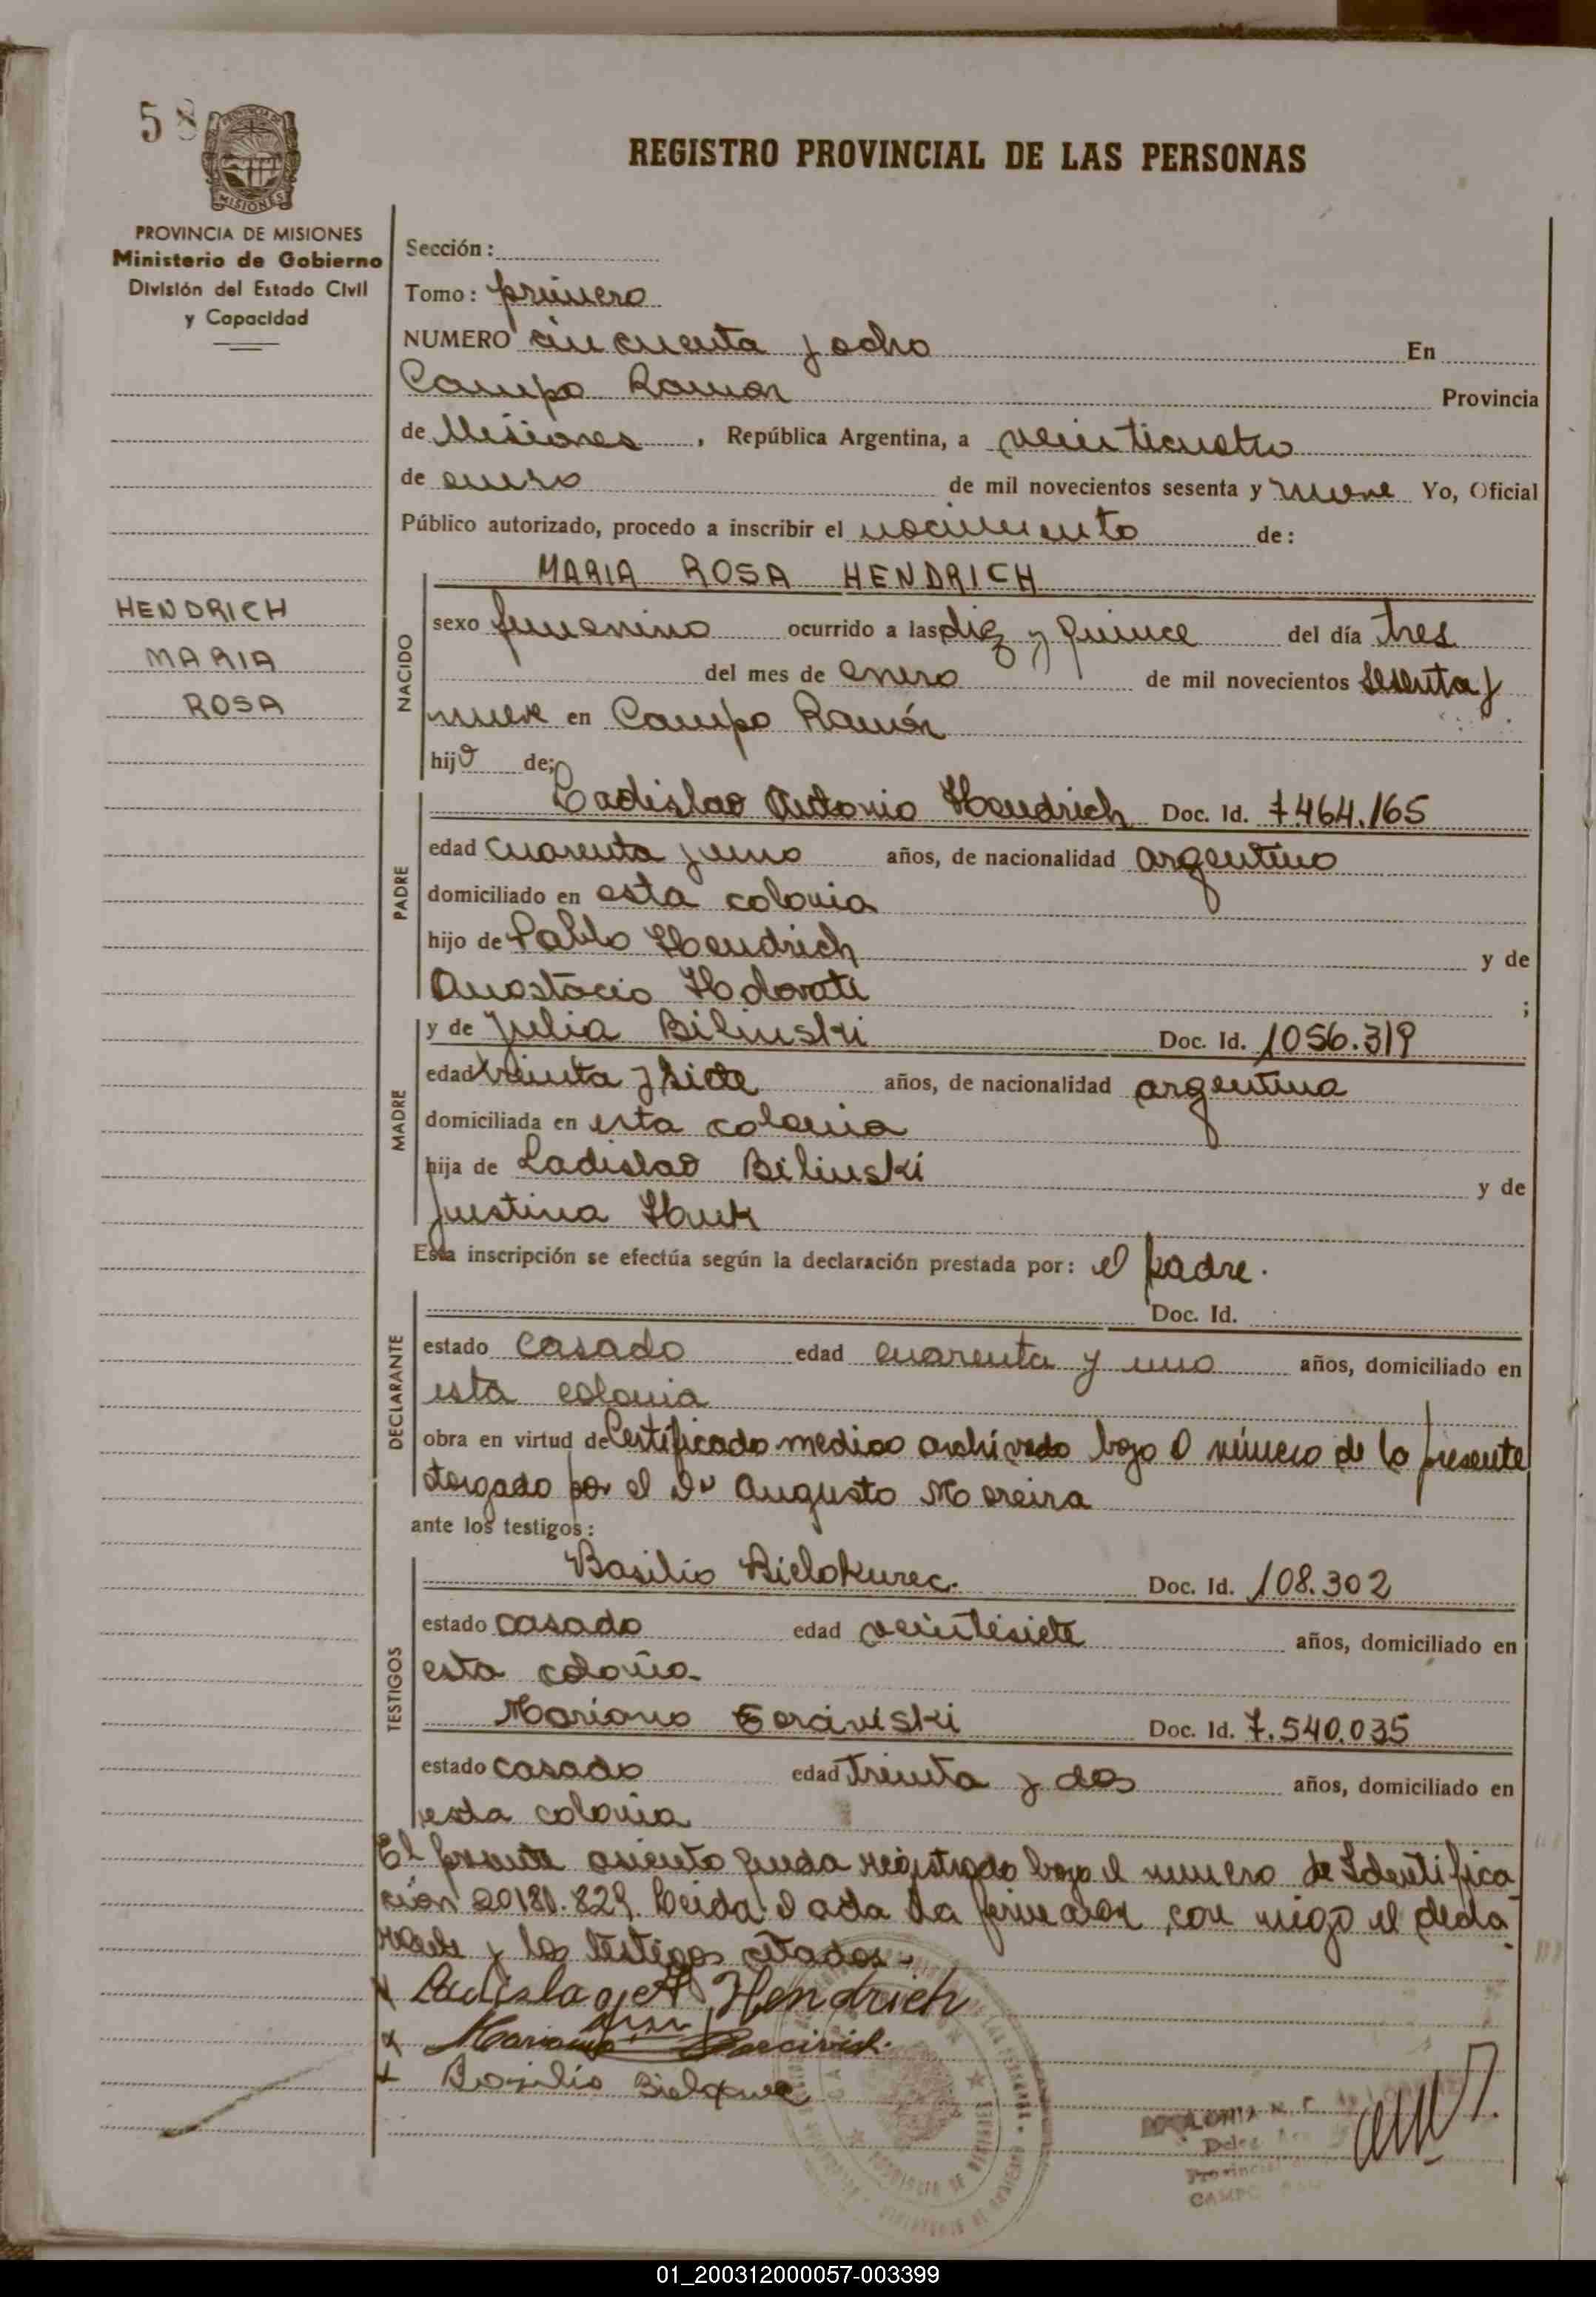 58
PROVINCIA DE MISIONES
Ministerio de Gobierno
División del Estado Civil
y Capacidad
HENDRICH
MARIA
ROSA
REGISTRO PROVINCIAL DE LAS PERSONAS
Sección:
Tomo: primero
NUMERO cincuenta y ocho En
Campo Ramon Provincia
de Misiones, República Argentina, a veinticuatro
de enero de mil novecientos sesenta y nueve Yo, Oficial
Público autorizado, procedo a inscribir el nacimiento de:
NACIDO
MARIA ROSA HENDRICH
sexo femenino ocurrido a las diez y quince del día tres
del mes de enero de mil novecientos sesenta y
nueve en Campo Ramón
hija de;
PADRE
Ladislao Antonio Hendrich Doc. Id. 7.464.165
edad cuarenta y uno años, de nacionalidad argentino
domiciliado en esta colonia
hijo de Pablo Hendrich y de
Anastacia ;
MADRE
y de Julia Bilinski Doc. Id. 1056.319
edad treinta y siete años, de nacionalidad argentina
domiciliada en esta colonia
hija de Ladislao Bilinski y de
Justina Huk
Esta inscripción se efectúa según la declaración prestada por: el padre.
DECLARANTE
Doc. Id.
estado casado edad cuarenta y uno años, domiciliado en
esta colonia
obra en virtud de Certificado medico archivado bajo el número de la presente
otorgado por el Dr Augusto Moreira
ante los testigos:
TESTIGOS
Basilio Bielokurec. Doc. Id. 108.302
estado casado edad veintisiete años, domiciliado en
esta colonia
Mariano Doc. Id. 7.540.035
estado casado edad treinta y dos años, domiciliado en
esta colonia
El presente asiento queda registrado bajo el numero de Identifica
ción 20181.829. Leida el acta la firmaron con migo el decla
rante y los testigos citados.
Ladislao A Hendrich
Mariano
Basilio
CAMPO
01_200312000057-003399